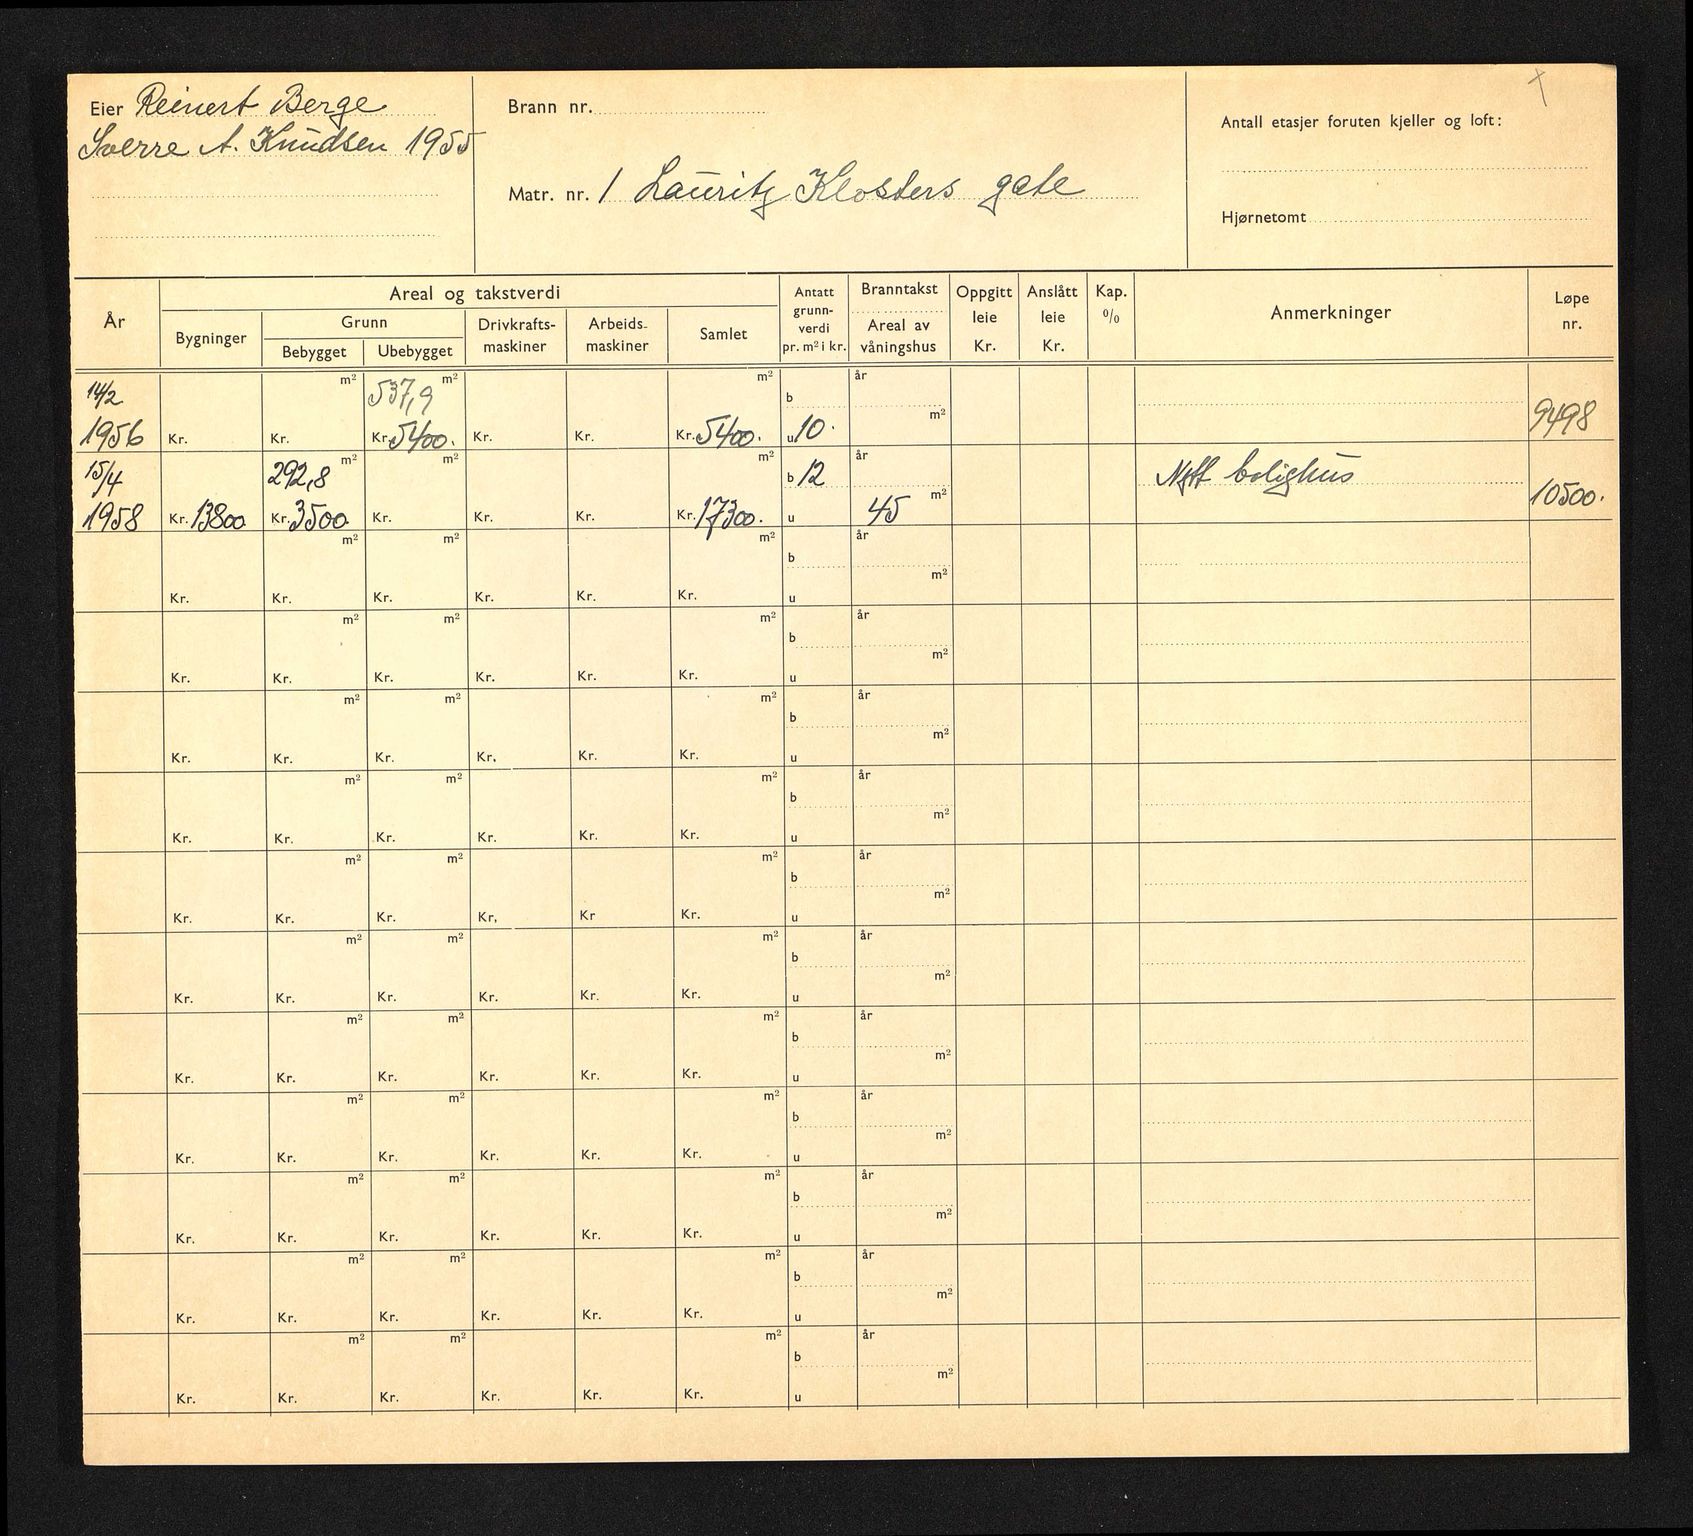 Eier Reinert Berge
Sverre A. Knudsen 1955
Brann nr.
Matr. nr. 1 Lauritz Klosters gate
Antall etasjer foruten kjeller og loft:
Hjørnetomt
År
Areal og takstverdi
Bygninger
Grunn
Bebygget
Ubebygget
Drivkrafts-
maskiner
Arbeids-
maskiner
Samlet
Antatt
grunn-
verdi
pr. m² i kr.
Branntakst
Areal av
våningshus
Oppgitt
leie
Kr.
Anslått
leie
Kr.
Kap.
%
Anmerkninger
Løpe
nr.
14/2 m² 537,9 m² m² b år
1956 Kr. Kr. Kr. 5400. Kr. Kr. Kr. 5400. u 10. m² 9498
15/4 292,8 m² m² m² b 12 år Nytt bolighus
1958 Kr. 13800 Kr. 3500 Kr. Kr. Kr. Kr. 17300. u 45 m² 10500.
m² m² m² b år
Kr. Kr. Kr. Kr. Kr. Kr. u m²
m² m² m² b år
Kr. Kr. Kr. Kr. Kr. Kr. u m²
m² m² m² b år
Kr. Kr. Kr. Kr. Kr. Kr. u m²
m² m² m² b år
Kr. Kr. Kr. Kr. Kr. Kr. u m²
m² m² m² b år
Kr. Kr. Kr. Kr, Kr Kr. u m²
m² m² m² b år
Kr. Kr. Kr. Kr. Kr. Kr. u m²
m² m² m² b år
Kr. Kr. Kr. Kr. Kr. Kr. u m²
m² m² m² b år
Kr. Kr. Kr. Kr. Kr. Kr. u m²
m² m² m² b år
Kr. Kr. Kr. Kr. Kr. Kr. u m²
m² m² m² b år
Kr. Kr. Kr. Kr. Kr. Kr. u m²
m² m² m² b år
Kr. Kr. Kr. Kr. Kr. Kr. u m²